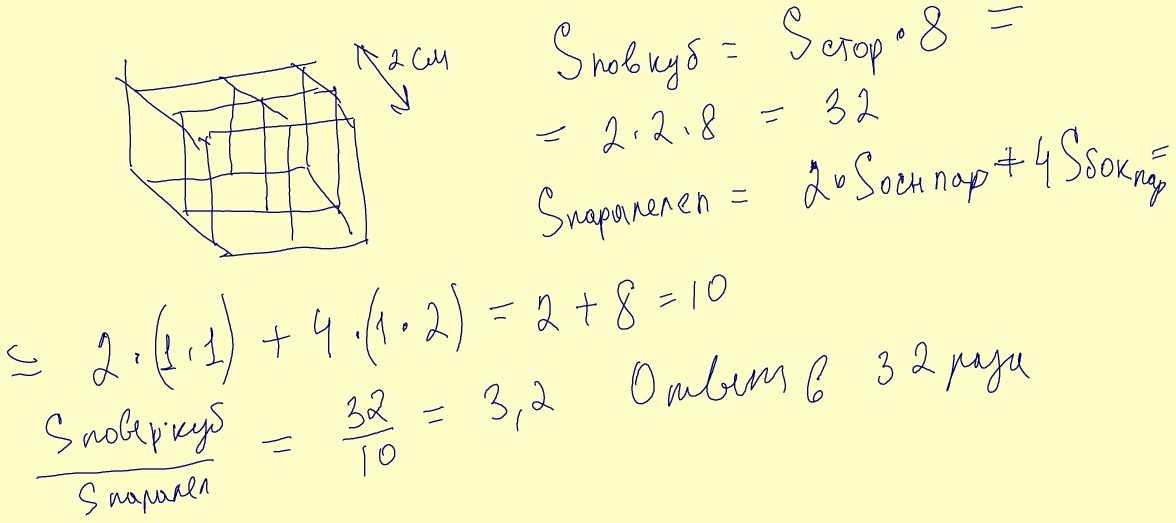 2 см
Sповкуб = Sстор • 8 =
= 2 · 2 · 8 = 32
Sпаралелеп = 2•Sоснпар + 4Sбокпар =
= 2 · (1 · 1) + 4 · (1 · 2) = 2 + 8 = 10
Sповер.куб / Sпаралел = 32/10 = 3,2 Ответ в 3 2 раза